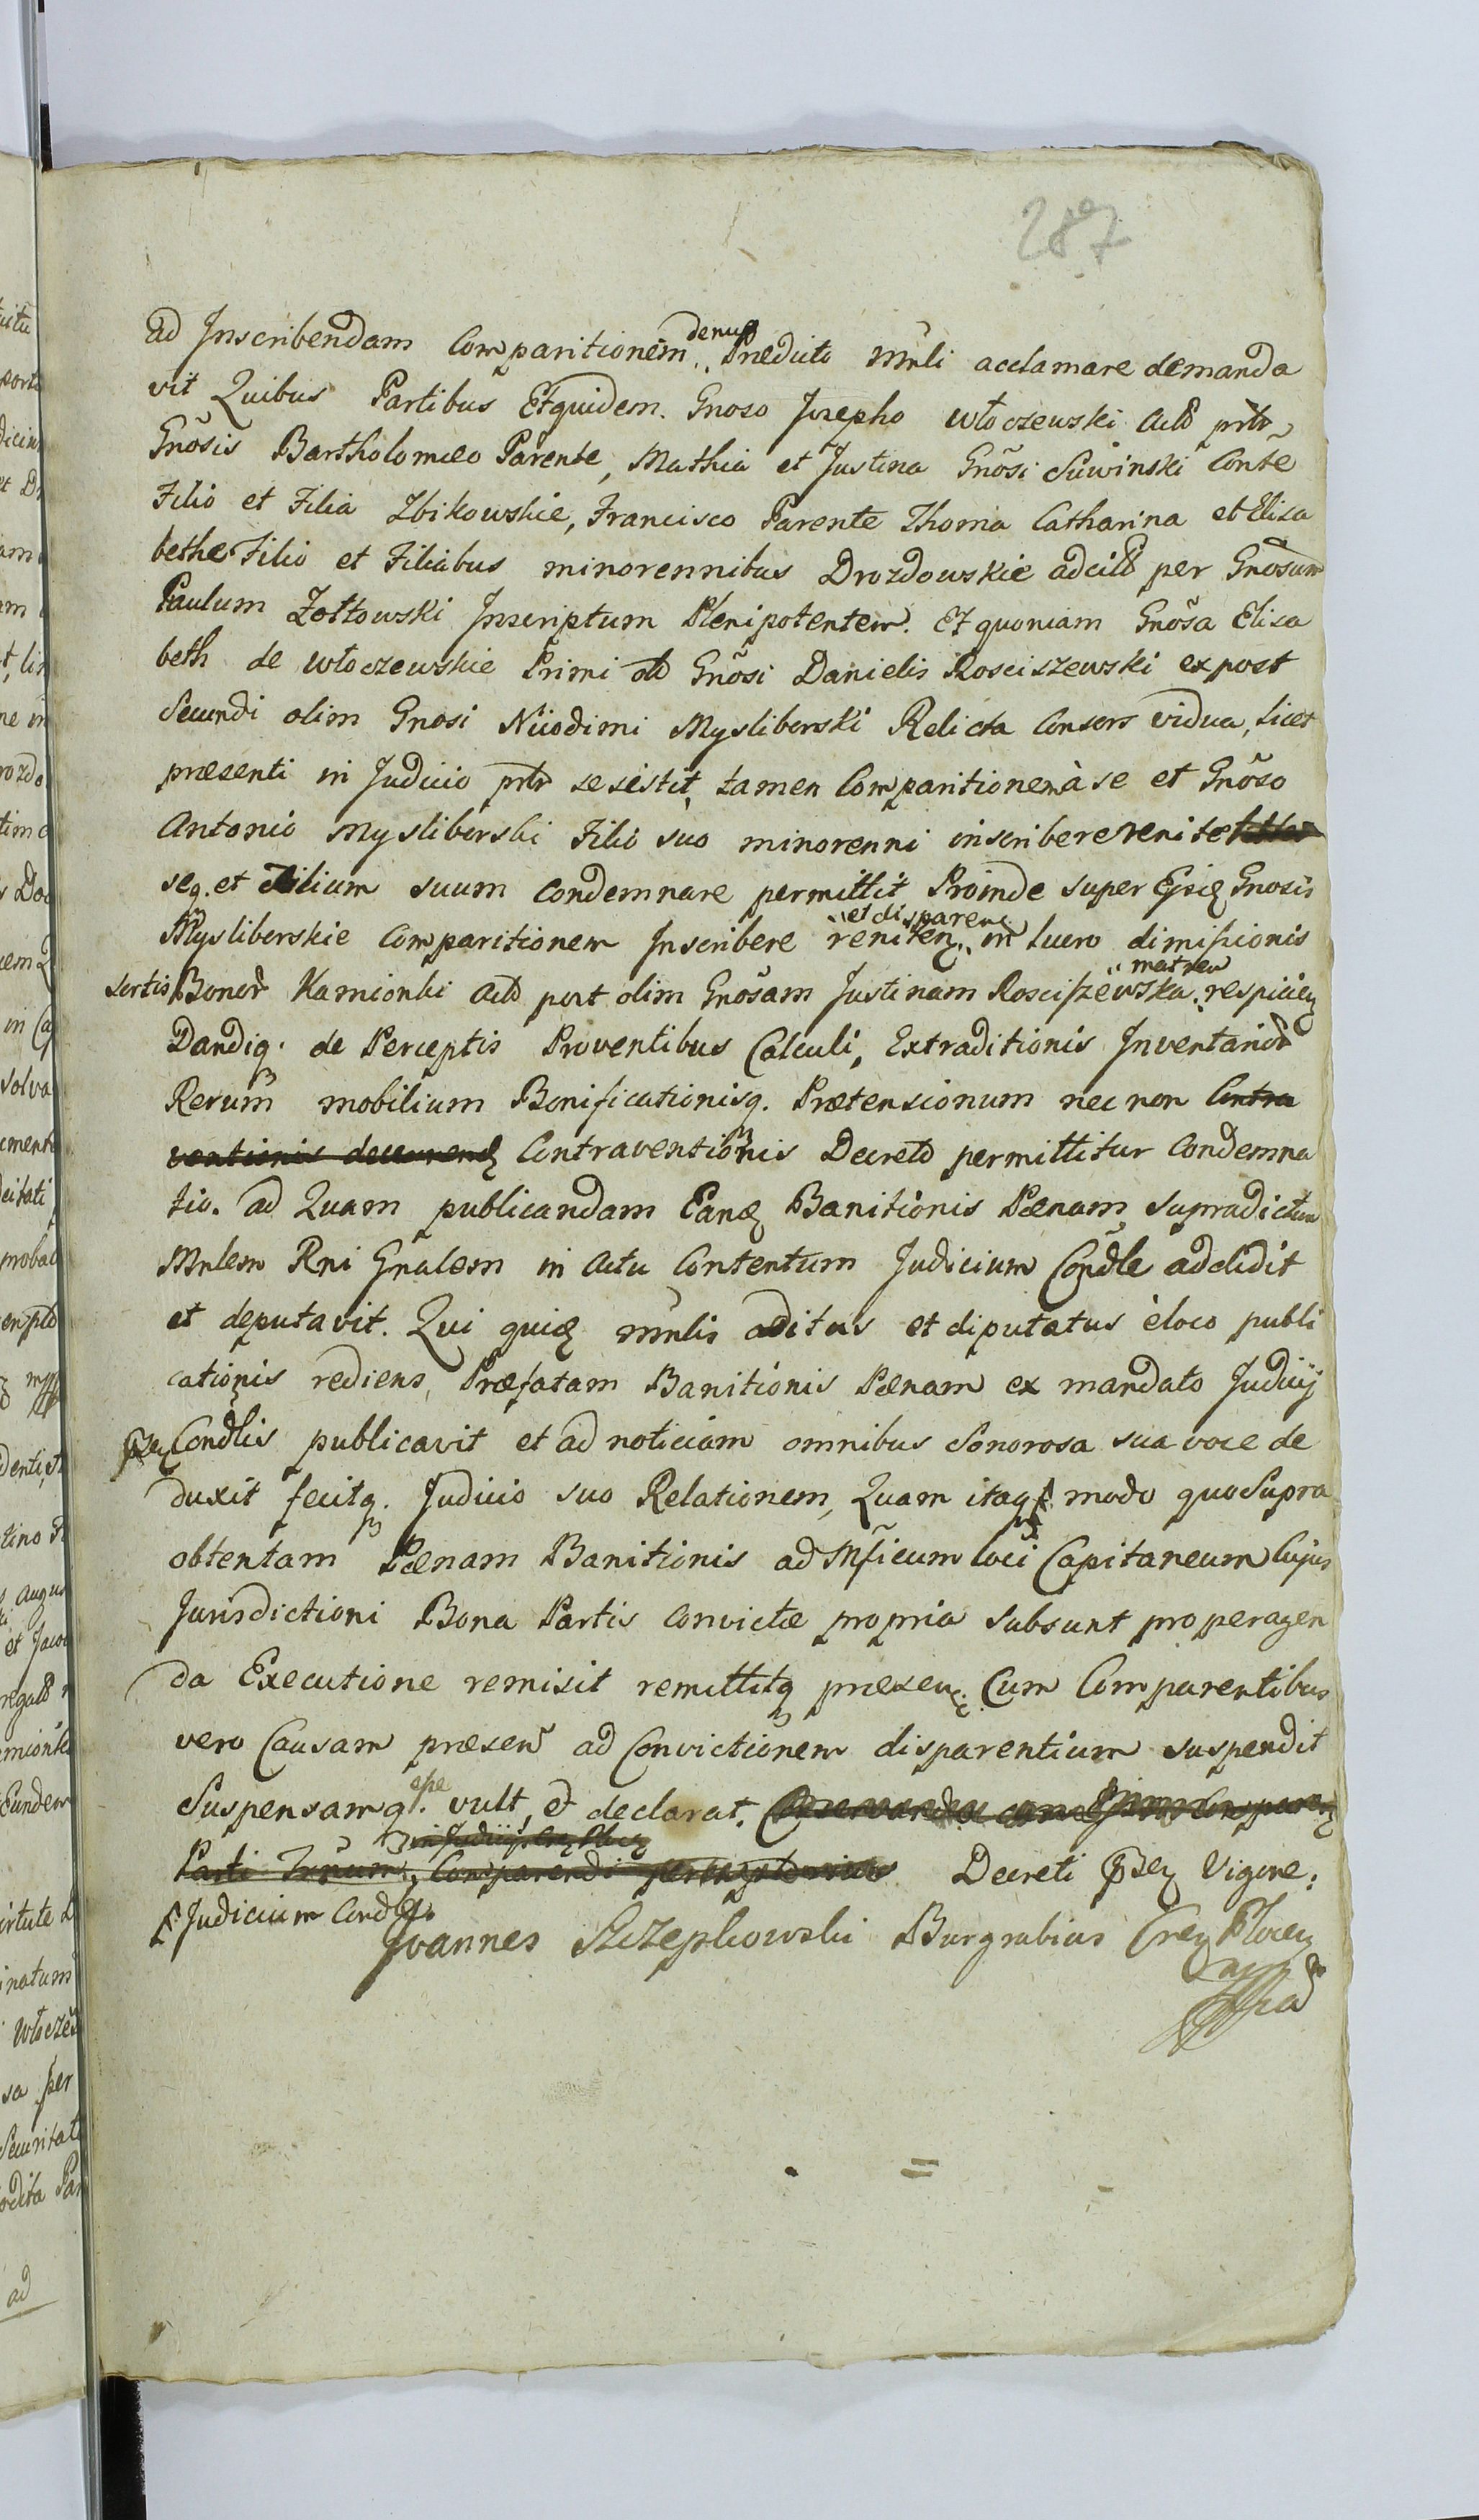 287
ad Inscribendam Comparitionem denuo Prædicto Mnli acclamare demanda
vit Quibus Partibus Et quidem. Gnoso Josepho Włoczewski Actô prtr
Gnõsis Bartholomæo Parente, Mathia et Justina Gnõsi Suwinski Conte
Filio et Filia Zbikowskie, Francisco Parente Thoma Catharina et Eliza
bethe Filio et Filiabus minorennibus Drozdowskie adcitô per Gnõsum
Paulum Zołtowski Inscriptum Plenipotentem. Et quoniam Gnõsa Eliza
beth de Włoczewskie Primi olô Gnõsi Danielis Rosciszewski ex post
Secundi olim Gnosi Nicodimi Mysliborski Relicta Consors vidua, licet
præsenti in Judicio prtr se sistit, tamen Comparitionem à se et Gnõso
Antonio Mysliborski Filio suo minorenni inscribere renitet
seq. et Filium suum condemnare permittit Proinde super Gnosis
Mysliborskie Comparitionem Inscribere reniten. et disparen. in lucro dimissionis
sortis Bonor Kamionki actô post olim Gnõsam Justinam Rosciszewska matrem respicien
Dandiq. de Perceptis Proventibus Calculi, Extraditionis Inventarior
Rerum mobilium Bonificationisq. Prætensionum nec non Contra
ventionis Contraventionis Decretô permittitur Condemna
tio. ad Quam publicandam Banitionis Pænam, supradictum
Mnlem Rni Gnalem in Actu Contentum Judicium Condle addidit
et deputavit. Qui quid mnlis aditus et diputatus è loco publi
cationis rediens, Præfatam Banitionis Pænam ex mandato Judicij
Condlis publicavit et ad noticiam omnibus Sonorosa sua voce de
duxit fecitq. Judicio suo Relationem, Quam itaq modo quo Supra
obtentam Pænam Banitionis ad Mficum loci Capitaneum Cujus
Jurisdictioni Bona Partis convictæ propria subsunt pro peragen
da Executione remisit remittitq præsen. Cum Comparentibus
vero Causam præsen ad Convictionem disparentium suspendit
Suspensamq. esse vult, et declarat.
Parti Comparendi Decreti Vigore.
Judicium Condle.
Joannes Szczepkowski Burgrabius